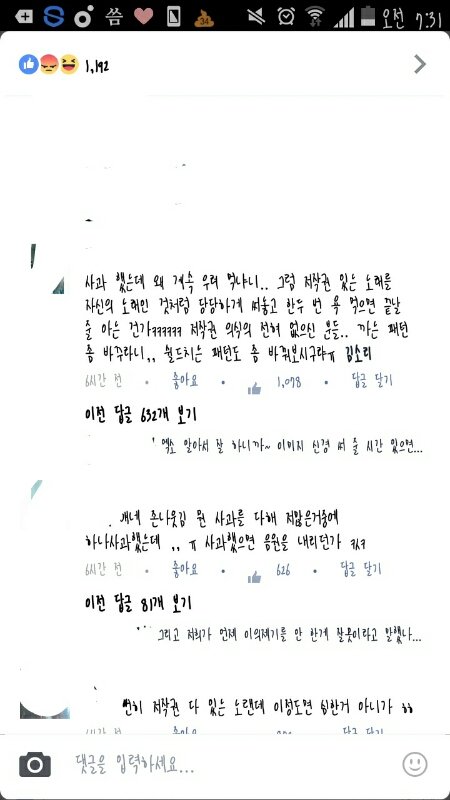 씀 34 오전 7:31
1,192
사과 했는데 왜 계속 우려 먹냐니.. 그럼 저작권 있는 노래를
자신의 노래인 것처럼 당당하게 써놓고 한두 번 욕 먹으면 끝날
줄 아는 건가ㅋㅋㅋㅋㅋㅋ 저작권 의식의 전혀 없으신 분들.. 까는 패턴
좀 바꾸라니,, 쉴드치는 패턴도 좀 바꿔보시구라ㅠ 김소리
6시간 전 • 좋아요 • 1,078 • 답글 달기
이전 답글 632개 보기
엑소 알아서 잘 하니까~ 이미지 신경 써 줄 시간 있으면...
. 걔네 존나웃김 뭔 사과를 다해 저많은거중에
하나사과했는데 ,, ㅠ 사과했으면 음원을 내리던가 ㅋㅋㅋ
6시간 전 • 좋아요 • 626 • 답글 달기
이전 답글 81개 보기
그리고 저희가 언제 이의제기를 안 한게 잘못이라고 말했나...
뻔히 저작권 다 있는 노랜데 이정도면 심한거 아니가 ㅎㅎ
댓글을 입력하세요...